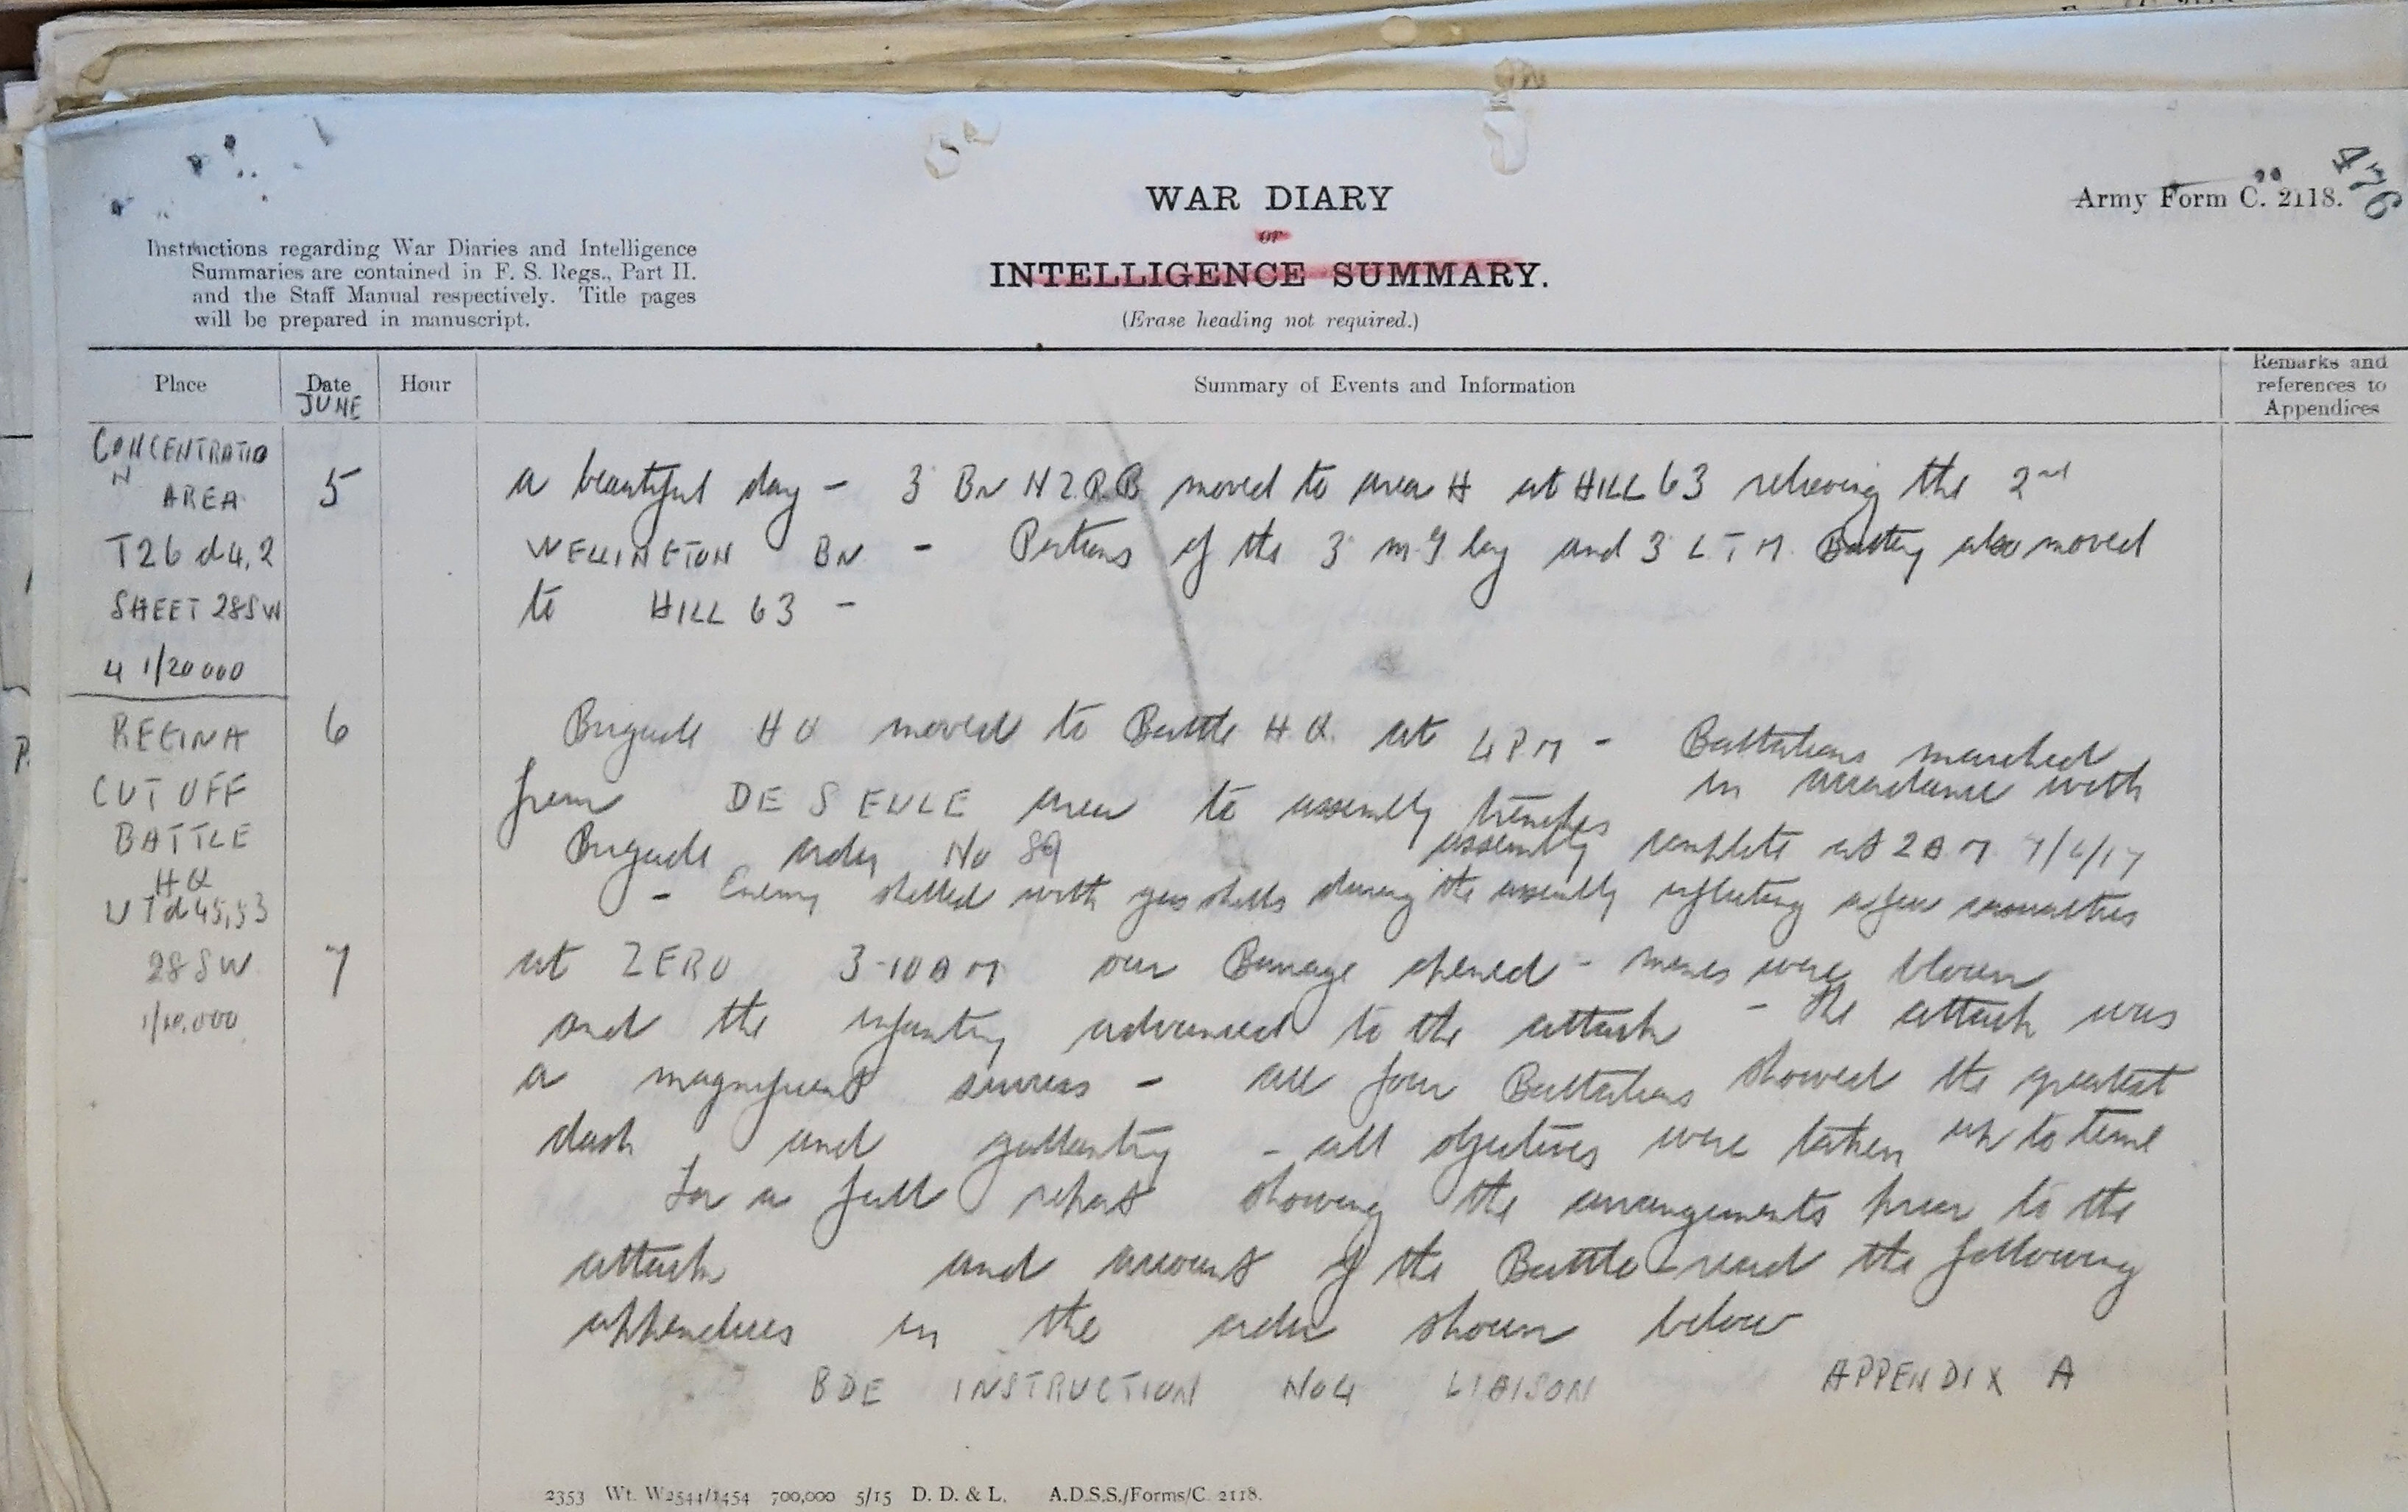 476
WAR DIARY
or
INTELLIGENCE SUMMARY.
(Erase heading not required.)
Army Form C. 2118.
Instructions regarding War Diaries and Intelligence
Summaries are contained in F. S. Regs., Part II.
and the Staff Manual respectively. Title pages
will be prepared in manuscript.
Place
Date
JUNE
Hour
Summary of Events and Information
Remarks and
references to
Appendices
CONCENTRATIO
N AREA
T26 d4,2
SHEET 28SW
4 1/20000
5
a beautiful day - 3 Bn NZRB moved to area H at HILL 63 relieving the 2nd
WELLINGTON BN - Portions of the 3 m.g Coy and 3 LTM Battery also moved
to HILL 63 -
REGINA
CUT OFF
BATTLE
HQ
6
Brigade HQ moved to Battle H.Q. at 4PM - Battalions marched
from DE SEULE area to assembly trenches in accordance with
Brigade order No 89 assembly complete at 2AM 7/6/17
- Enemy shelled with gas shells during the assembly inflicting a few casualties
28SW
1/10,000
7
at ZERO 3-10AM our Barrage opened - mines were blown
and the infantry advanced to the attack - The attack was
a magnificent success - all four Battalions showed the greatest
dash and gallantry - all objectives were taken up to time
For a full report showing the arrangements prior to the
attack and account of the Battle read the following
appendices in the order shown below
BDE INSTRUCTION No4 LIAISON APPENDIX A
2353 Wt. W2544/1454 700,000 5/15 D. D. & L. A.D.S.S./Forms/C. 2118.